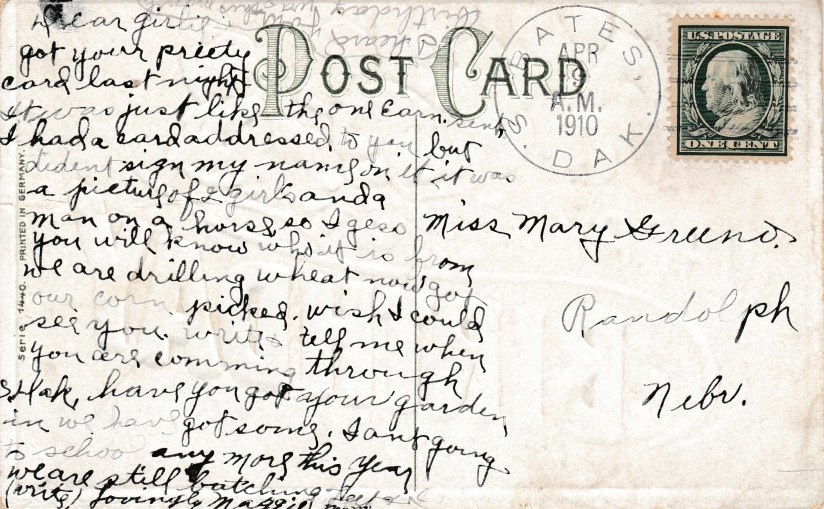 I heard
birthday
Dear girlie
got your preety
card last night
it was just like the one Earn. sent,
I had a card addressed to you but
dident sign my name on it it was
a picture of 2 girls and a
man on a horse so I gess
you will know who it is from
we are drilling wheat now got
our corn picked. wish I could
see you. write tell me when
you are comming through
S. Dak. have you got your garden
in we have got some. I ant going
to school any more this year
we are still batching
(write) Lovingly Maggie
POST CARD
BATES,
APR
19
A.M.
1910
S. DAK.
U.S. POSTAGE
ONE CENT
Miss Mary
Randolph
Nebr.
Serie 1440. PRINTED IN GERMANY.